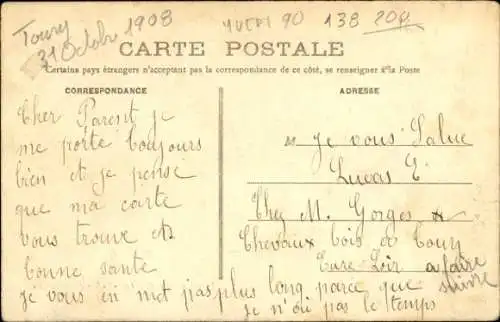 Toury
31 Octobr 1908
YVERT 90 138 20g
CARTE POSTALE
Certains pays étrangers n'acceptant pas la correspondance de ce côté, se renseigner à la Poste
CORRESPONDANCE
Cher Parent je
me porte toujours
bien et je pense
que ma carte
vous trouve et
bonne sante
je vous en met pas plus long parce que
je n'ai pas le temps
ADRESSE
je vous Salue
Lucas E
Chez M. Gorges
Chevaux bois de Toury
Eure Loir a faire
suivre